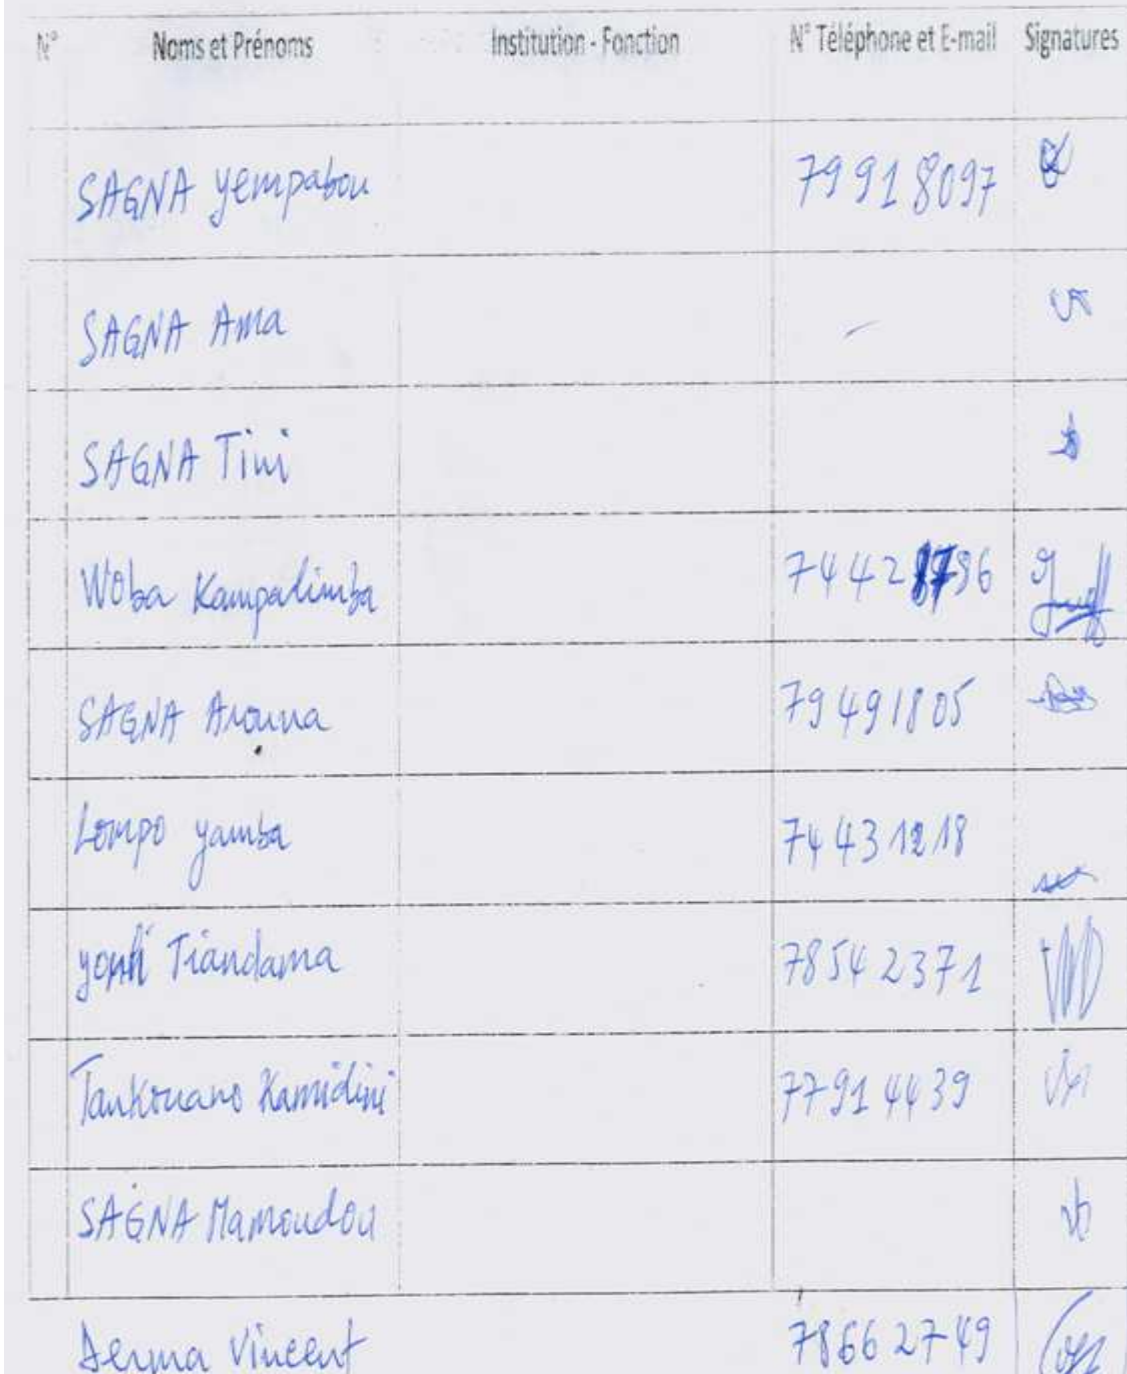 N° Noms et Prénoms Institution - Fonction N° Téléphone et E-mail Signatures
SAGNA yempabou 79918097
SAGNA Ama -
SAGNA Tini
Woba Kampadimba 74428796
SAGNA Arouna 79491805
Lompo yamba 74431218
Tiandama 78542371
Tankouano Kamidini 77914439
SAGNA Mamoudou
Derma Vincent 78662749